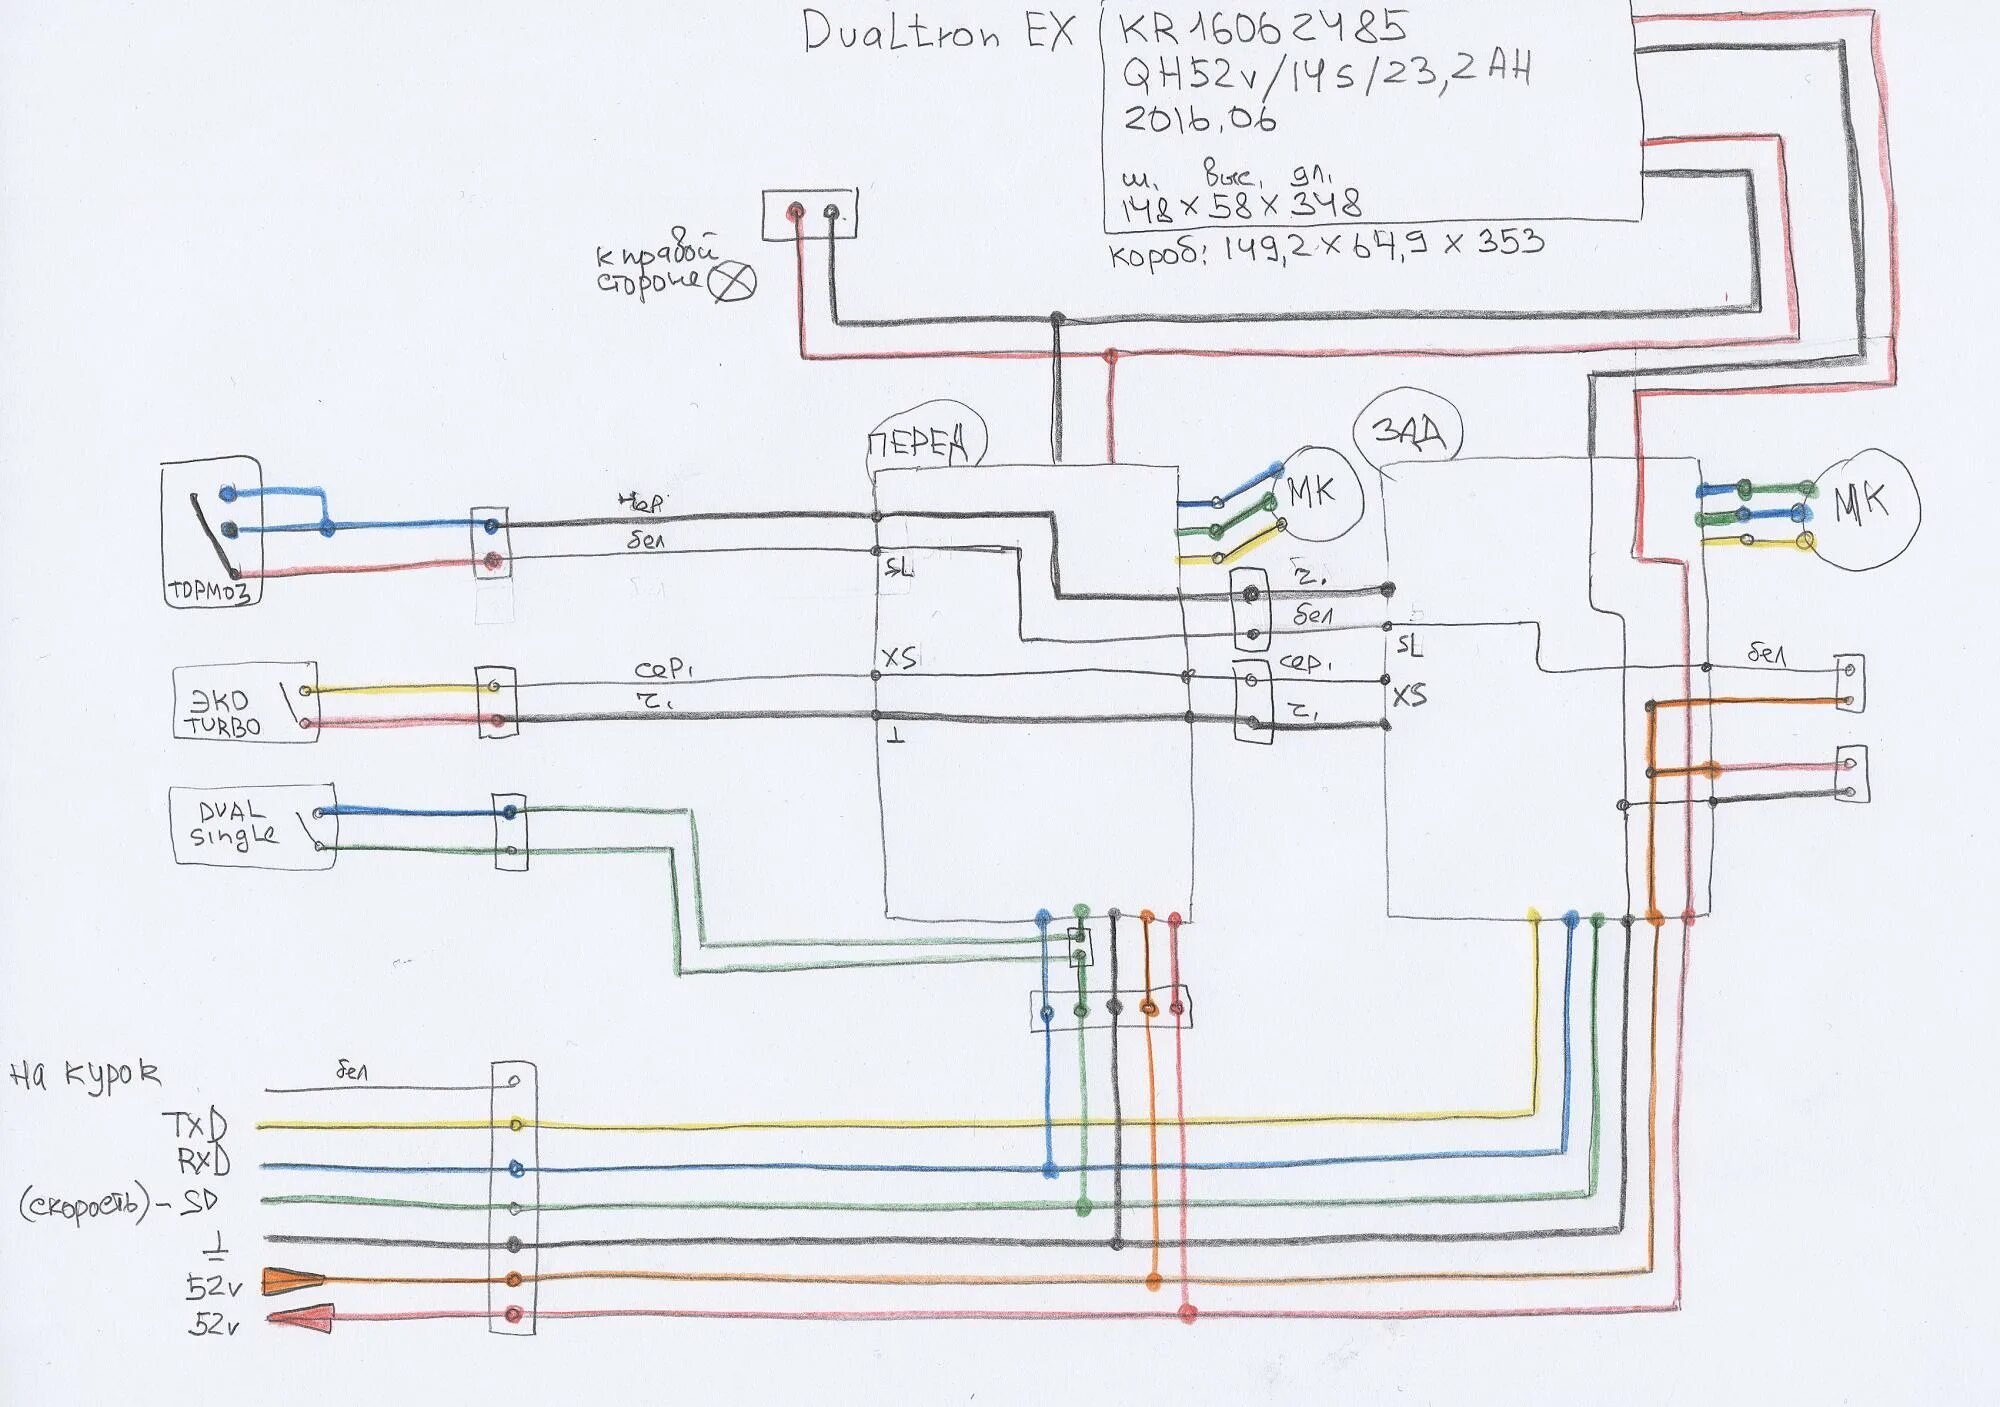 Dualtron EX
KR16062485
QH52v/14s/23,2AH
2016,06
ш. выс, дл,
148 x 58 x 348
короб: 149,2 x 64,9 x 353
к правой
стороне
ПЕРЕД
ЗАД
МК
МК
чер.
бел
SL
ТОРМОЗ
ч.
бел
SL
XS
сер,
ч.
⊥
сер,
XS
ч.
бел
ЭКО
TURBO
DUAL
single
На курок
бел
TXD
RXD
(скорость) - SD
⊥
52v
52v